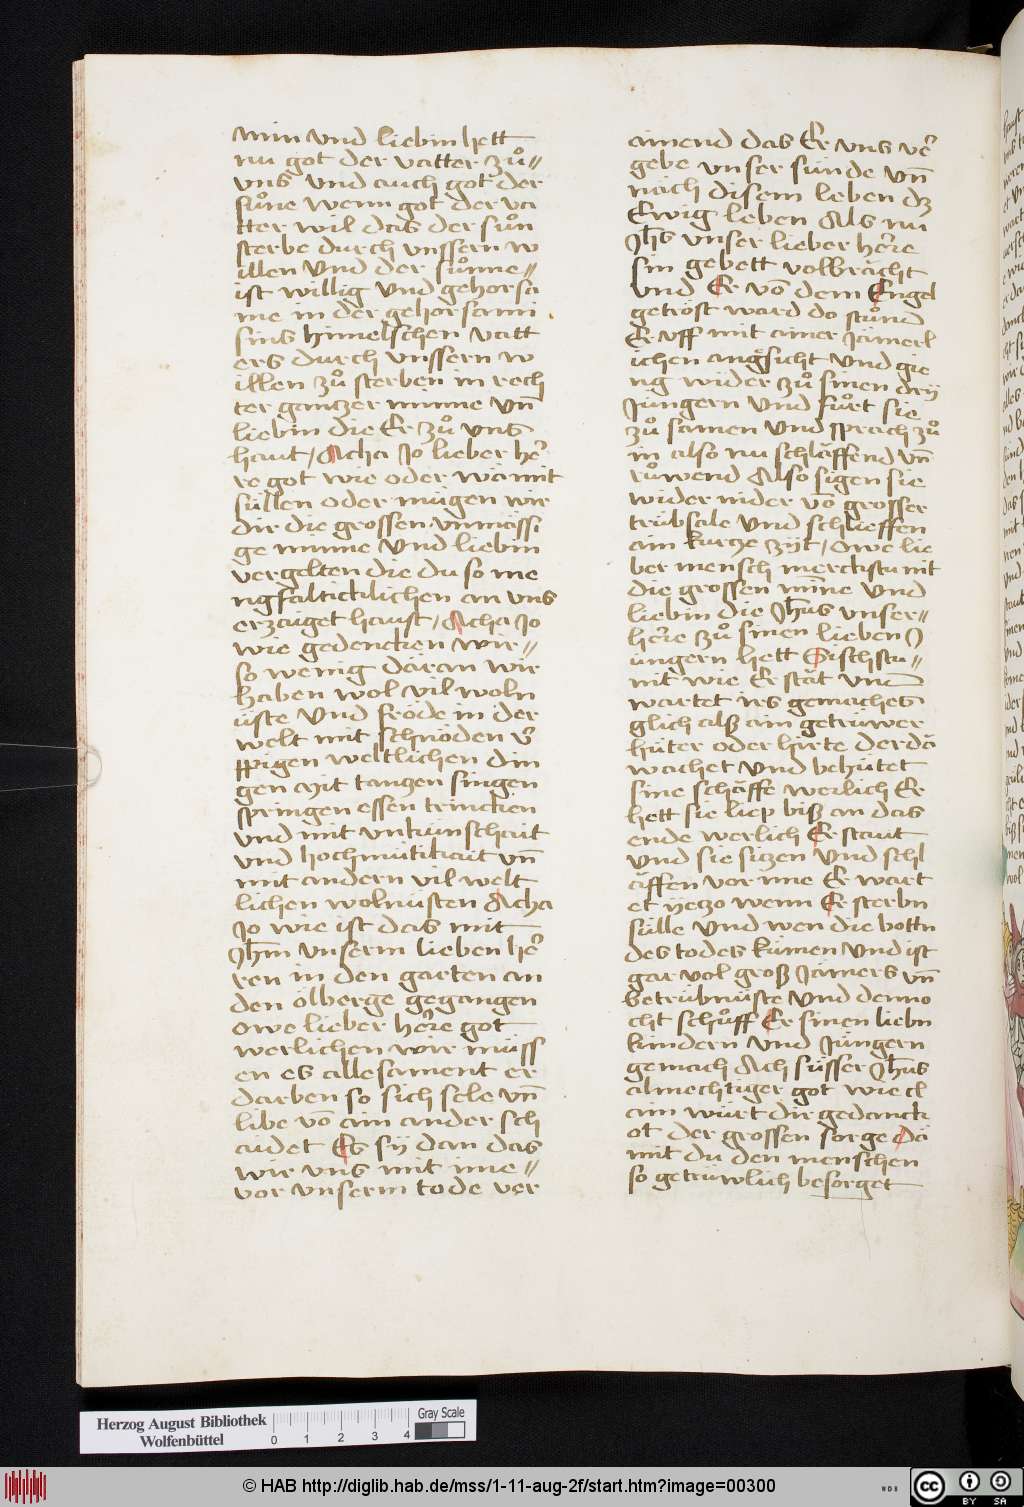 minn vnd liebin hett
nu got der vatter zuͦ=
vns vnd auch got der
suͦne wenn got der va
tter wil das der suͦn
sterbe durch vnssern w
illen vnd der suͦnne=
ist willig vnd gehorsa
me in der gehorsami
sins himelschen vatt
ers durch vnssern w
illen zuͦ sterben in rech
ter gantzer minne vn̄
liebin die Er zuͦ vns
haut / Acha Jo lieber he᷑
re got wie oder wa mit
süllen oder mügen wir
dir die grossen vnmässi
ge minne vnd liebin
vergelten die du so me
ngfalticklichen an vns
erzaiget haust / Acha Jo
wie gedencken wir=
so wenig daran wir
haben wol vil woln
üste vnd fröde in der
welt mit schnöden v᷑
ppigen weltlichen din
gen mit tanzen singen
springen essen trincken
vnd mit vnkünschait
vnd hochmütikait vn̄
mit andern vil welt
lichen wolnüsten Acha
Jo wie ist das mit
Jh̄m vnserm lieben he᷑
ren in den garten an
den ölberge gegangen
owe lieber he᷑re got
werlichen wir müss
en es allesament er
darben so sich sele vn̄
libe vō ain ander sch
aidet Es sÿ dan das
wir vns mit ime=
vor vnserm tode ver
ainend das Er vns ve᷑
gebe vnser sünde vn̄
nach disem leben dz
Ewig leben Als nu
Jh̄s vnser lieber he᷑re
sin gebett volbrächt
vnd Er vō dem Engel
getröst ward do stuͦnd
Er vff mit ainer Jämerl
ichen angͤsicht vnd gie
ng wider zuͦ sinen drÿ
Jüngern vnd fuͦrt sie
zuͦ samen vnd sprach zuͦ
in also nu schläffend vn̄
ruͦwend Also sigen sie
wider nider vō grosser
trübsale vnd schlieffen
ain kurze zÿt / Owe lie
ber mensch merckstu nit
die grossen mīne vnd
liebin die Jh̄us vnser=
he᷑re zuͦ sinen lieben J
üngern hett Sischstu=
nit wie Er stät vnd
wartet irs gemaches
glich alß ain getrüwer
hüter oder hirte der da
wachet vnd behütet
sine schäffe werlich Er
hett sie liep biß an das
ende werlich Er staut
vnd sie sizen vnd schl
äffen vor ime Er wart
et yezo wenn Er sterbn
sülle vnd wen die bottn
des todes kümen vnd ist
gar vol groß Jamers vn̄
betrübnüste vnd denno
cht schuͦff Er sinen liebn
kindern vnd Jüngern
gemach Ach süsser Jh̄us
almechtiger got wie cl
ain würt dir gedanck
ot der grossen sorge Da
mit du den menschen
so getrüwlich besorget
Herzog August Bibliothek
Wolfenbüttel
0 1 2 3 4
Gray Scale
© HAB http://diglib.hab.de/mss/1-11-aug-2f/start.htm?image=00300
WDB
cc BY SA